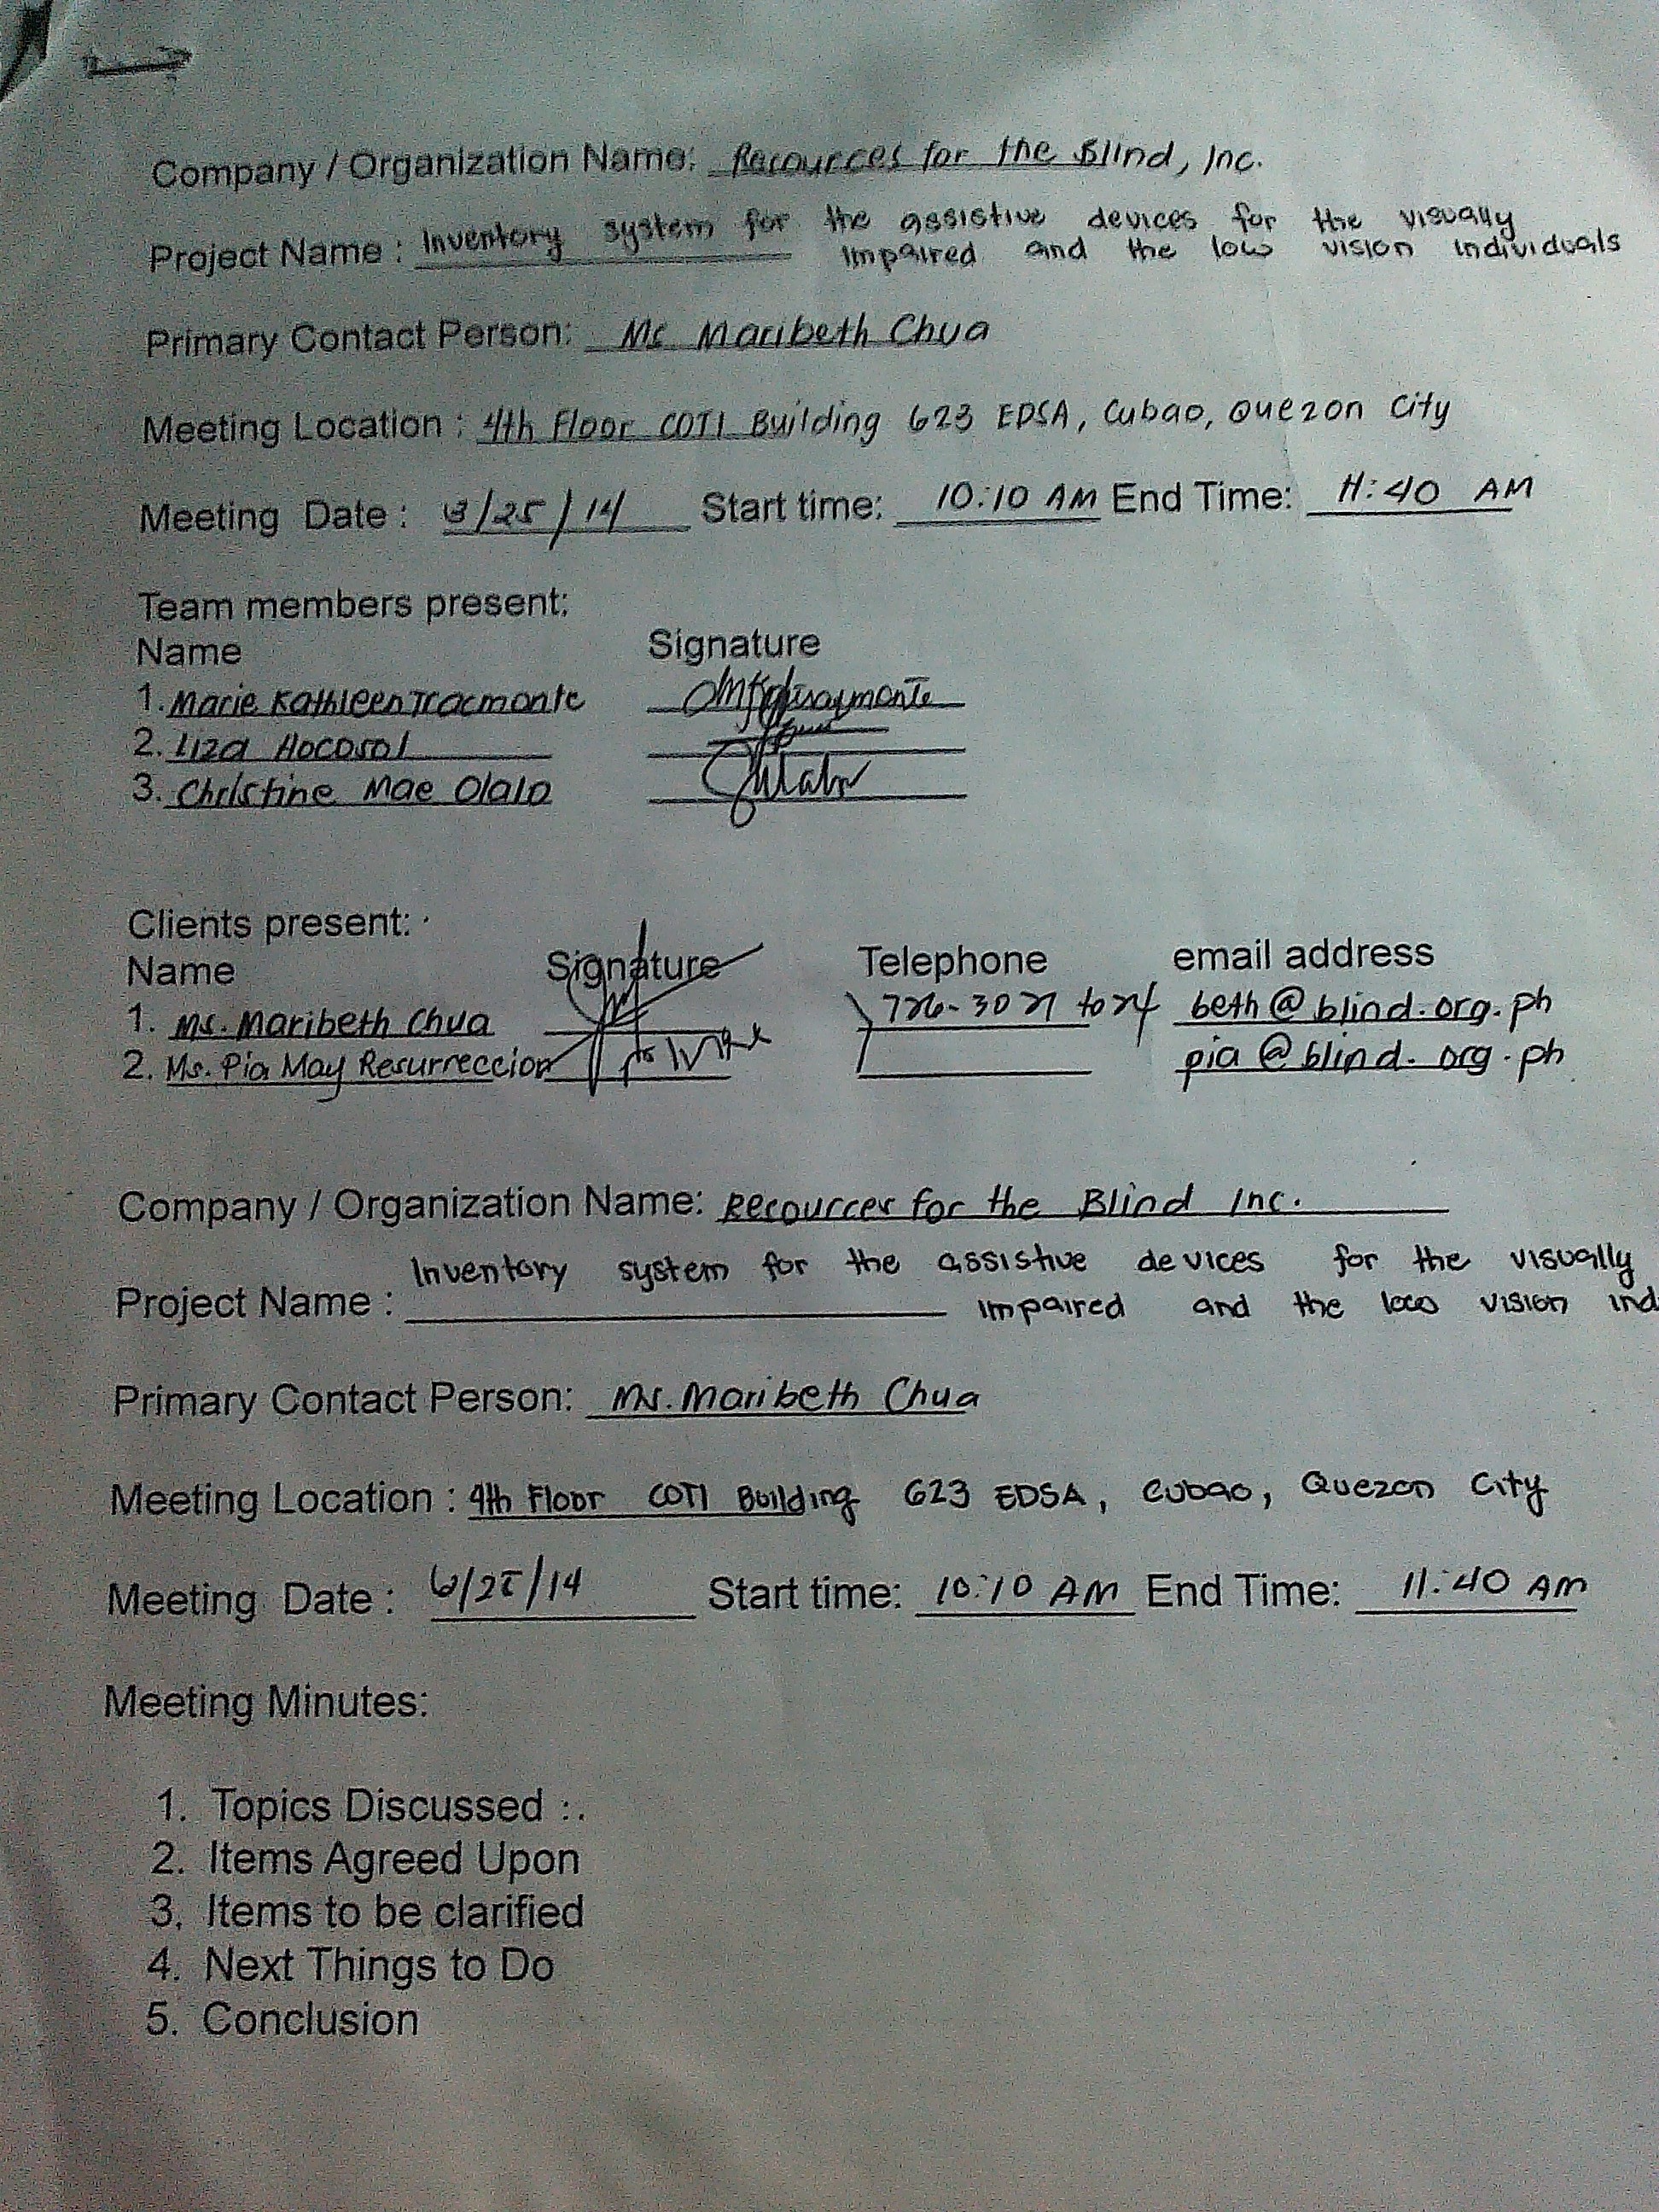 Company / Organization Name: Resources for the Blind, Inc.
Project Name : Inventory system for the assistive devices for the visually
impaired and the low vision individuals
Primary Contact Person: Ms. Maribeth Chua
Meeting Location : 4th Floor COTI Building 623 EDSA, Cubao, Quezon City
Meeting Date : /25/14 Start time: 10:10 AM End Time: 11:40 AM
Team members present:
Name Signature
1. Marie Kathleen Tracmonte
2. Liza
3. Christine Mae Olalo
Clients present:
Name Signature Telephone email address
1. Ms. Maribeth Chua 726-3021 to 24 beth@blind.org.ph
2. Ms. Pia May Resurreccion pia@blind.org.ph
Company / Organization Name: Resources for the Blind Inc.
Project Name : Inventory system for the assistive devices for the visually
impaired and the low vision ind
Primary Contact Person: Ms. Maribeth Chua
Meeting Location : 4th Floor COTI Building 623 EDSA, Cubao, Quezon City
Meeting Date : 6/25/14 Start time: 10:10 AM End Time: 11:40 AM
Meeting Minutes:
1. Topics Discussed :.
2. Items Agreed Upon
3. Items to be clarified
4. Next Things to Do
5. Conclusion